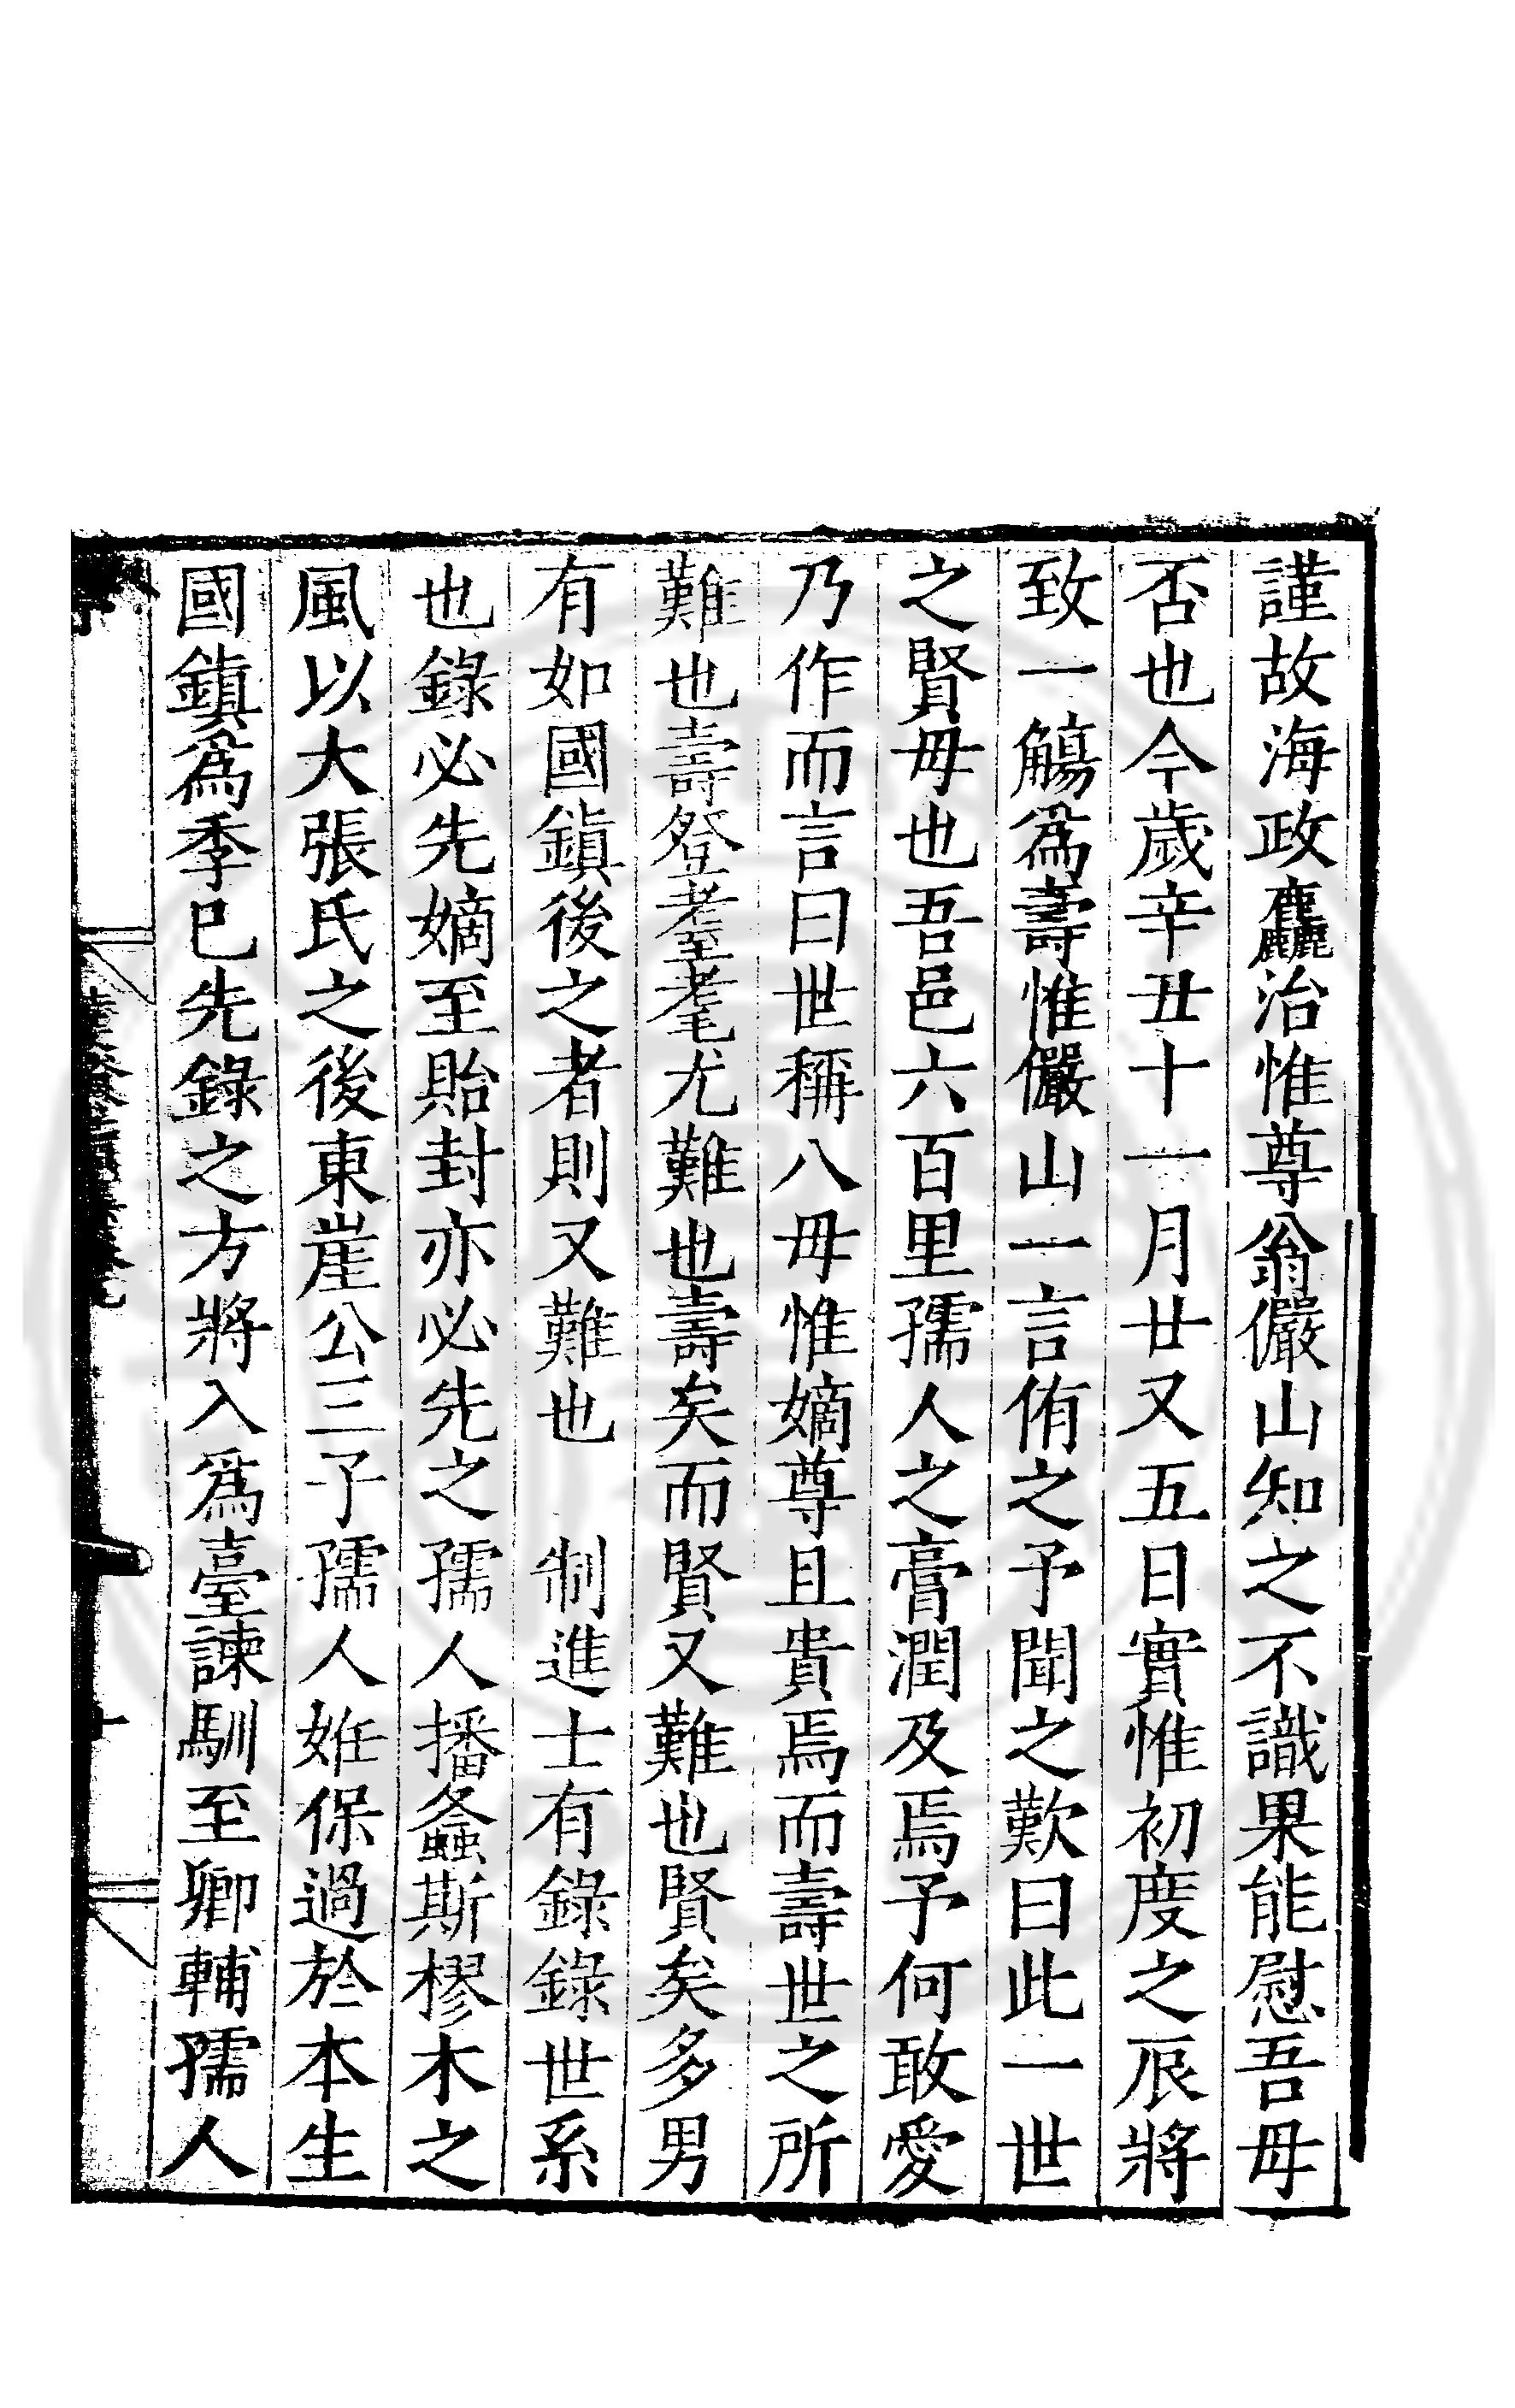 謹故海政麤治惟尊翁儼山知之不識果能慰吾母
否也今歲辛丑十一月廿又五日實惟初度之辰將
致一觴爲壽惟儼山一言侑之予聞之歎曰此一世
之賢母也吾邑六百里孺人之膏潤及焉予何敢愛
乃作而言曰世稱八母惟嫡尊且貴焉而壽世之所
難也壽登耋耄尤難也壽矣而賢又難也賢矣多男
有如國鎮後之者則又難也　制進士有錄錄世系
也錄必先嫡至貽封亦必先之孺人播螽斯樛木之
風以大張氏之後東崖公三子孺人姙保過於本生
國鎮爲季巳先錄之方將入爲臺諫馴至卿輔孺人